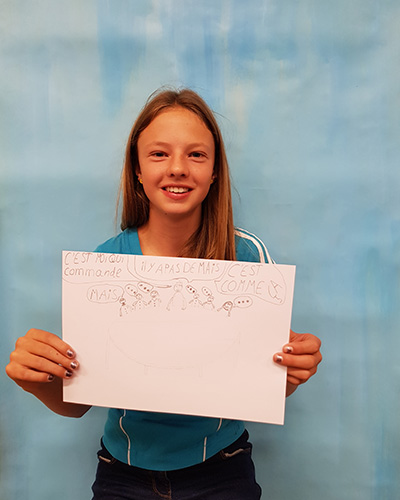 C'EST MOI QUI
commande
Y A PAS DE MAIS
C'EST
COMME
MAIS